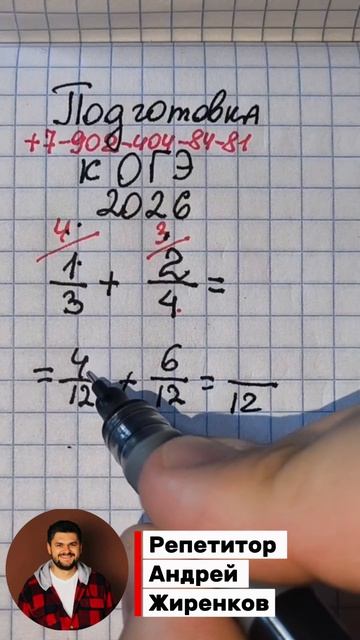 Подготовка
+7-908-404-84-81
к ОГЭ
2026
4 3
1/3 + 2/4 =
= 4/12 + 6/12 = /12
Репетитор
Андрей
Жиренков